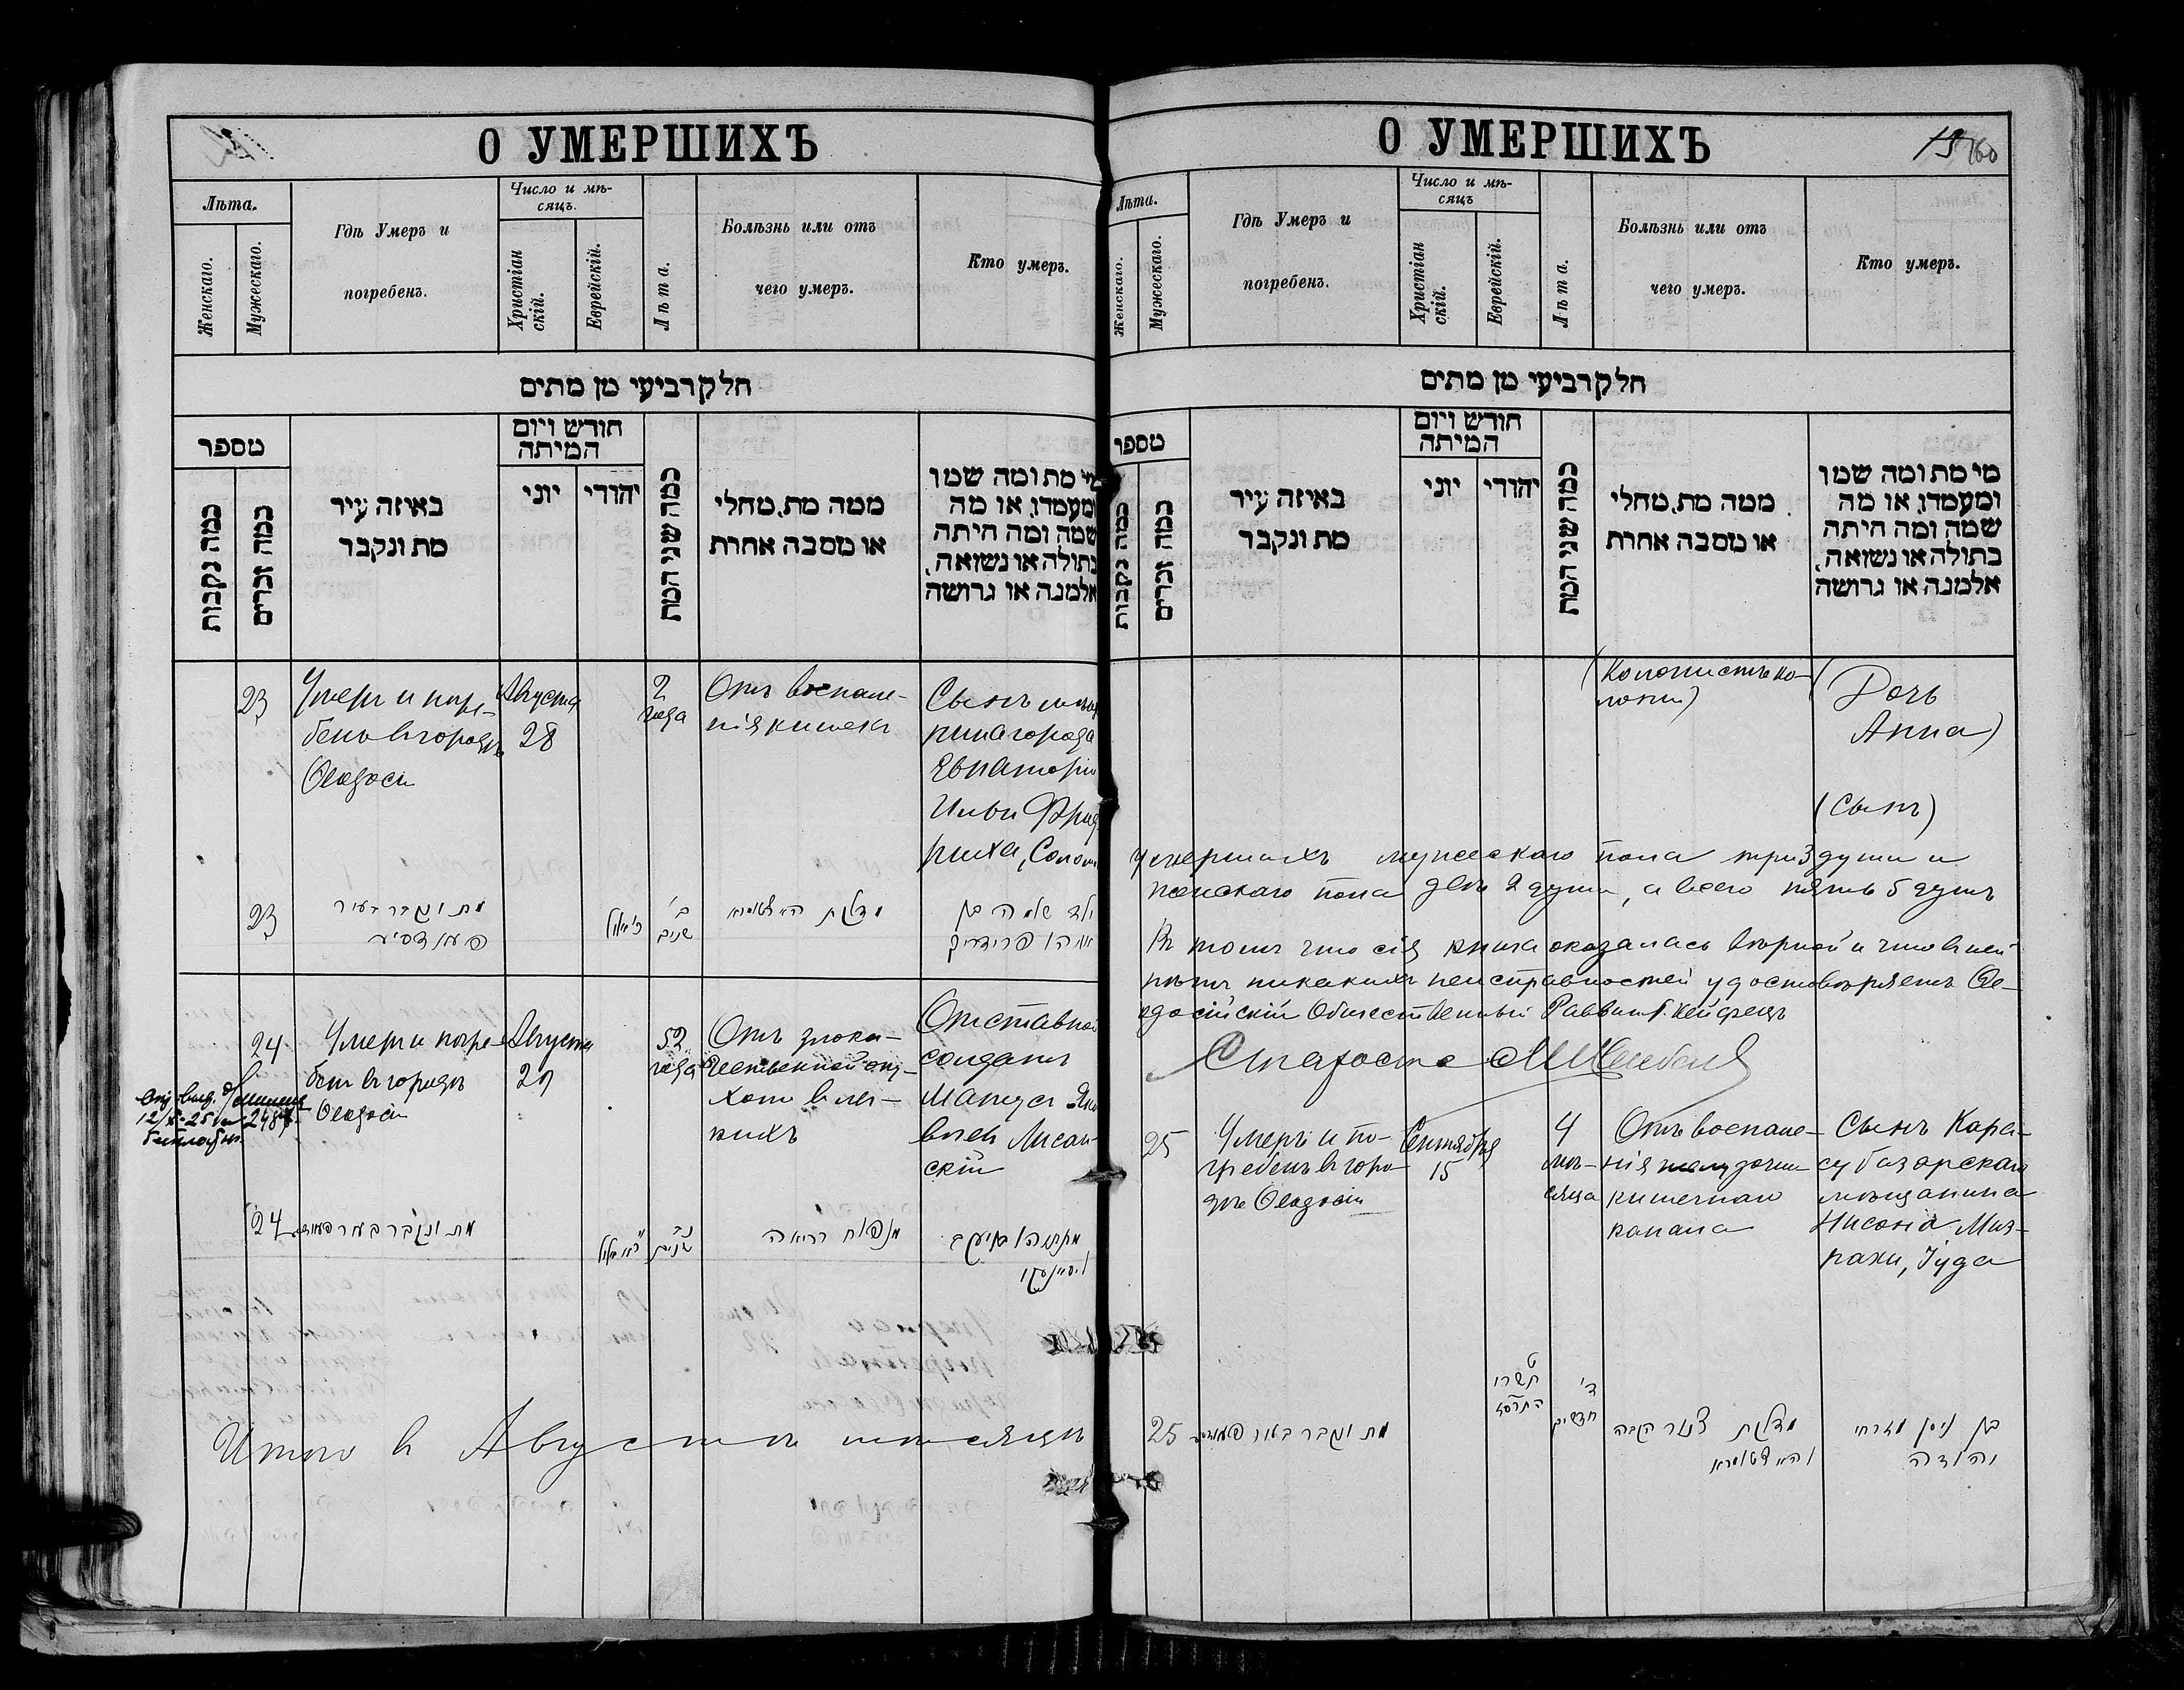 О УМЕРШИХЪ
Лѣта.
Женскаго.
Мужескаго.
Гдѣ Умеръ и
погребенъ.
Число и мѣ-
сяцъ.
Христіан
скій.
Еврейскій.
Лѣта.
Болѣзнь или отъ
чего умеръ.
Кто умеръ.
חלק רביעי מן מתים
מספר
כמה נקבות
כמה זכרים
באיזה עיר
מת ונקבר
חודש ויום
המיתה
יוני
יהודי
כמה שני המת
ממה מת, מחלי
או מסבה אחרת
מי מת ומה שמו
ומעמדו, או מה
שמה ומה היתה
בתולה או נשואה,
אלמנה או גרושה
23
Умеръ и погре-
бенъ въ городѣ
Ѳеодосіи
Августа
28
2
года
Отъ воспале-
нія кишекъ
Сынъ мѣща
нина города
Евпаторіи
Ильи Фрид
риха, Соломо
23
מת ונקבר בעיר
ב'
שנים
דלקת
ילד שלמה בן
24
Умеръ и погре-
бенъ въ городѣ
Ѳеодосіи
Августа
29
52
года
Отъ злока-
чественной опу-
холи въ лег-
кихъ
Отставной
солдатъ
Матусъ Янк
елевъ Лисан
скій
24
מת ונקבר בעיר
נב
שנים
Итого въ Августѣ мѣсяцѣ
О УМЕРШИХЪ
19
160
Лѣта.
Женскаго.
Мужескаго.
Гдѣ Умеръ и
погребенъ.
Число и мѣ-
сяцъ
Христіан
скій.
Еврейскій.
Лѣта.
Болѣзнь или отъ
чего умеръ.
Кто умеръ.
חלק רביעי מן מתים
מספר
כמה נקבות
כמה זכרים
באיזה עיר
מת ונקבר
חודש ויום
המיתה
יוני
יהודי
כמה שני המת
ממה מת, מחלי
או מסבה אחרת
מי מת ומה שמו
ומעמדו, או מה
שמה ומה היתה
בתולה או נשואה,
אלמנה או גרושה
(Колонистъ ко-
лоніи)
(Дочь
Анна)
(Сынъ)
умершихъ мужескаго пола три 3 души и
женскаго пола двѣ 2 души, а всего пять 5 душъ
Въ томъ что сія книга оказалась вѣрной и что въ ней
нѣтъ никакихъ неисправностей удостовѣряетъ Ѳе-
одосійскій Общественный Раввинъ Кейфецъ
Староста
25
Умеръ и по-
гребенъ въ горо-
дѣ Ѳеодосіи
Сентября
15
4
мѣ-
сяца
Отъ воспале-
нія желудочно
кишечнаго
канала
Сынъ Кара-
субазарскаго
мѣщанина
Нисона Миз-
рахи, Іуда
25
מת ונקבר בעיר
תשרי
ד'
חדשים
דלקת
בן ניסן מזרחי
יהודה